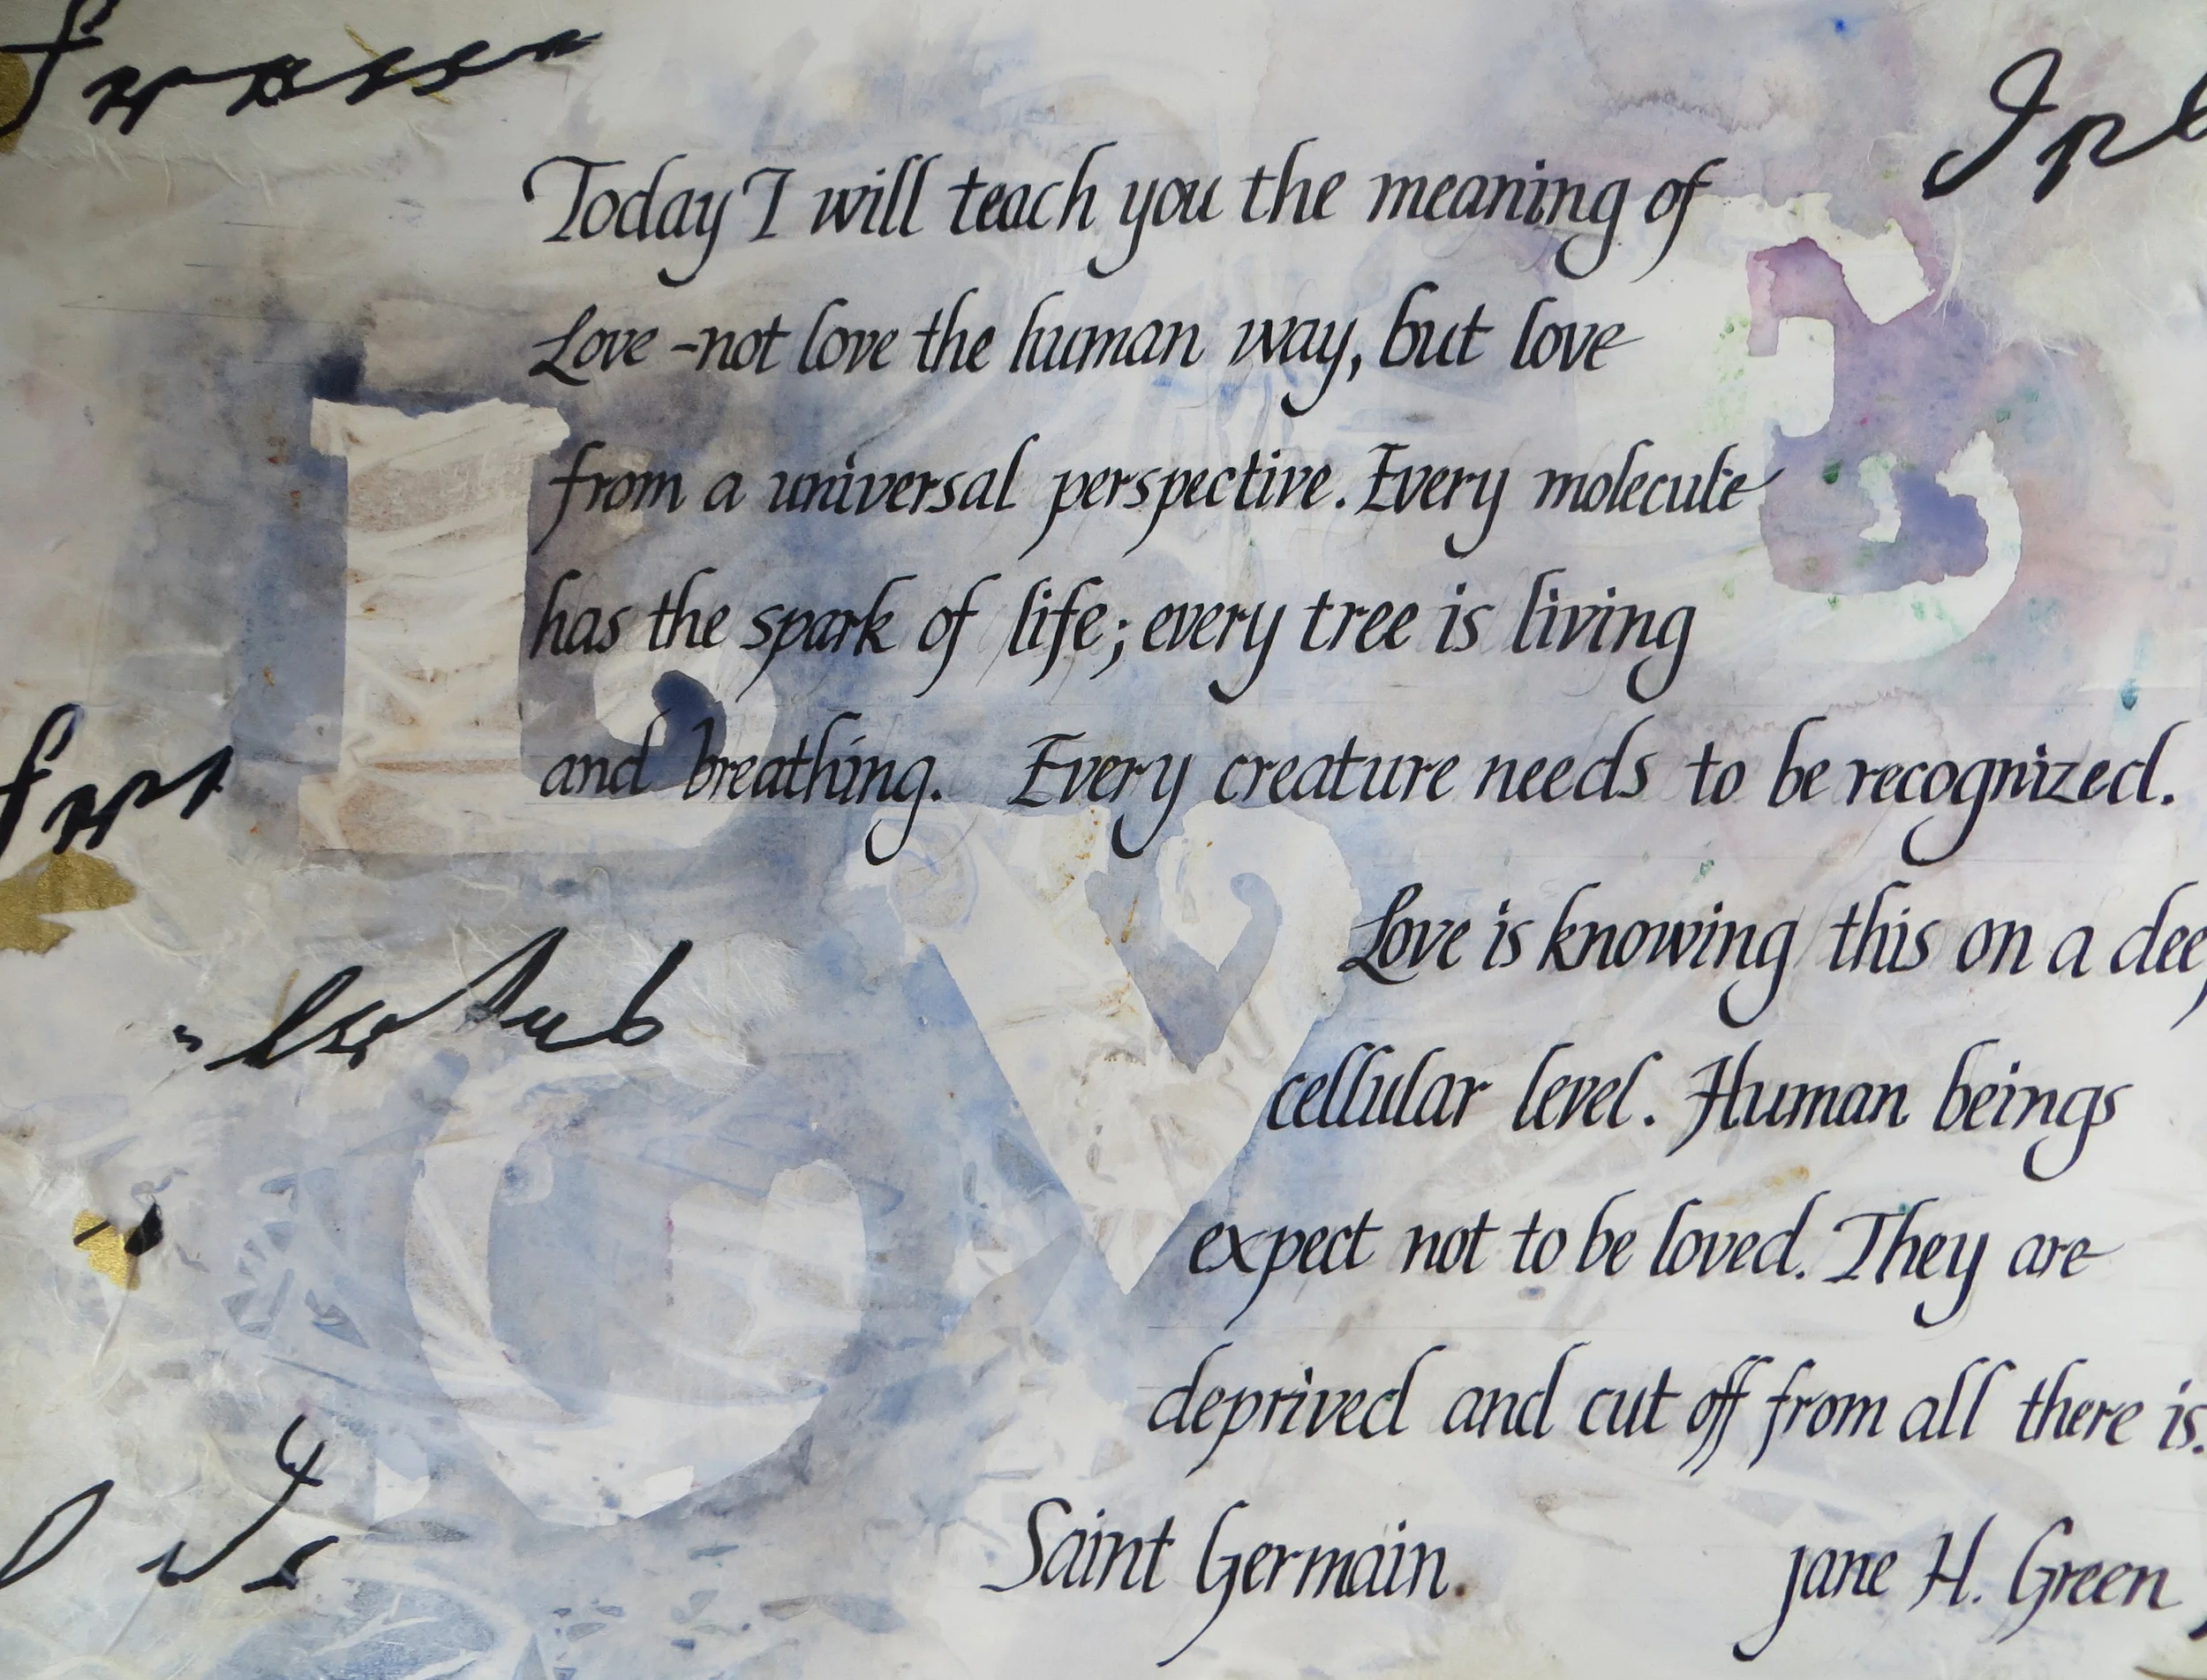 Today I will teach you the meaning of
Love - not love the human way, but love
from a universal perspective. Every molecule
has the spark of life; every tree is living
and breathing. Every creature needs to be recognized.
Love is knowing this on a dee
cellular level. Human beings
expect not to be loved. They are
deprived and cut off from all there is.
Saint Germain.
Jane H. Green